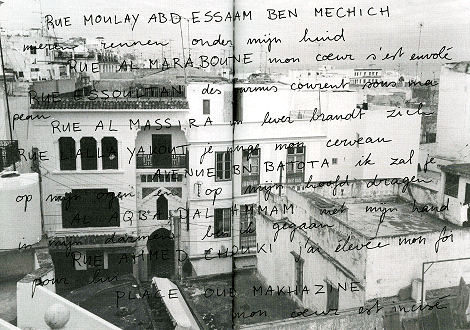 RUE MOULAY ABD ESSAAM BEN MECHICH
mieren rennen onder mijn huid
RUE AL MARABOUNE mon cœur s'est envolé
RUE ESSOULTAN des fourmis courent sous ma
peau RUE AL MASSIRA mijn lever brandt zich
RUE LALLA YAKOUT je mange mon cerveau
AVENUE IBN BATOTA ik zal je
op mijn ogen en op mijn hoofd dragen
AL AQBA DAL HAMMAM met mijn hand
in mijn darmen ben ik gegaan
RUE AHMED CHOUKI j'ai élevé mon foi
pour lui
PLACE OUE MAKHAZINE
mon cœur est incisé